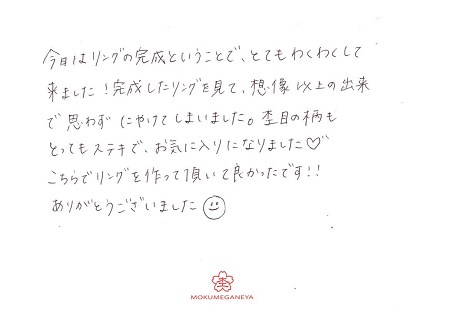 今日はリングの完成ということで、とてもわくわくして
来ました！完成したリングを見て、想像以上の出来
で思わずにやけてしまいました。杢目の柄も
とってもステキで、お気に入りになりました♡
こちらでリングを作って頂いて良かったです！！
ありがとうございました☺
杢
MOKUMEGANEYA